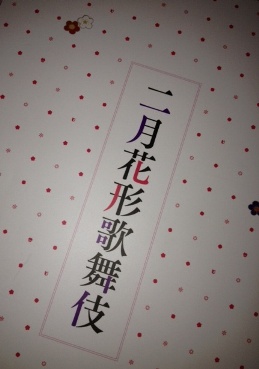 二月花形歌舞伎